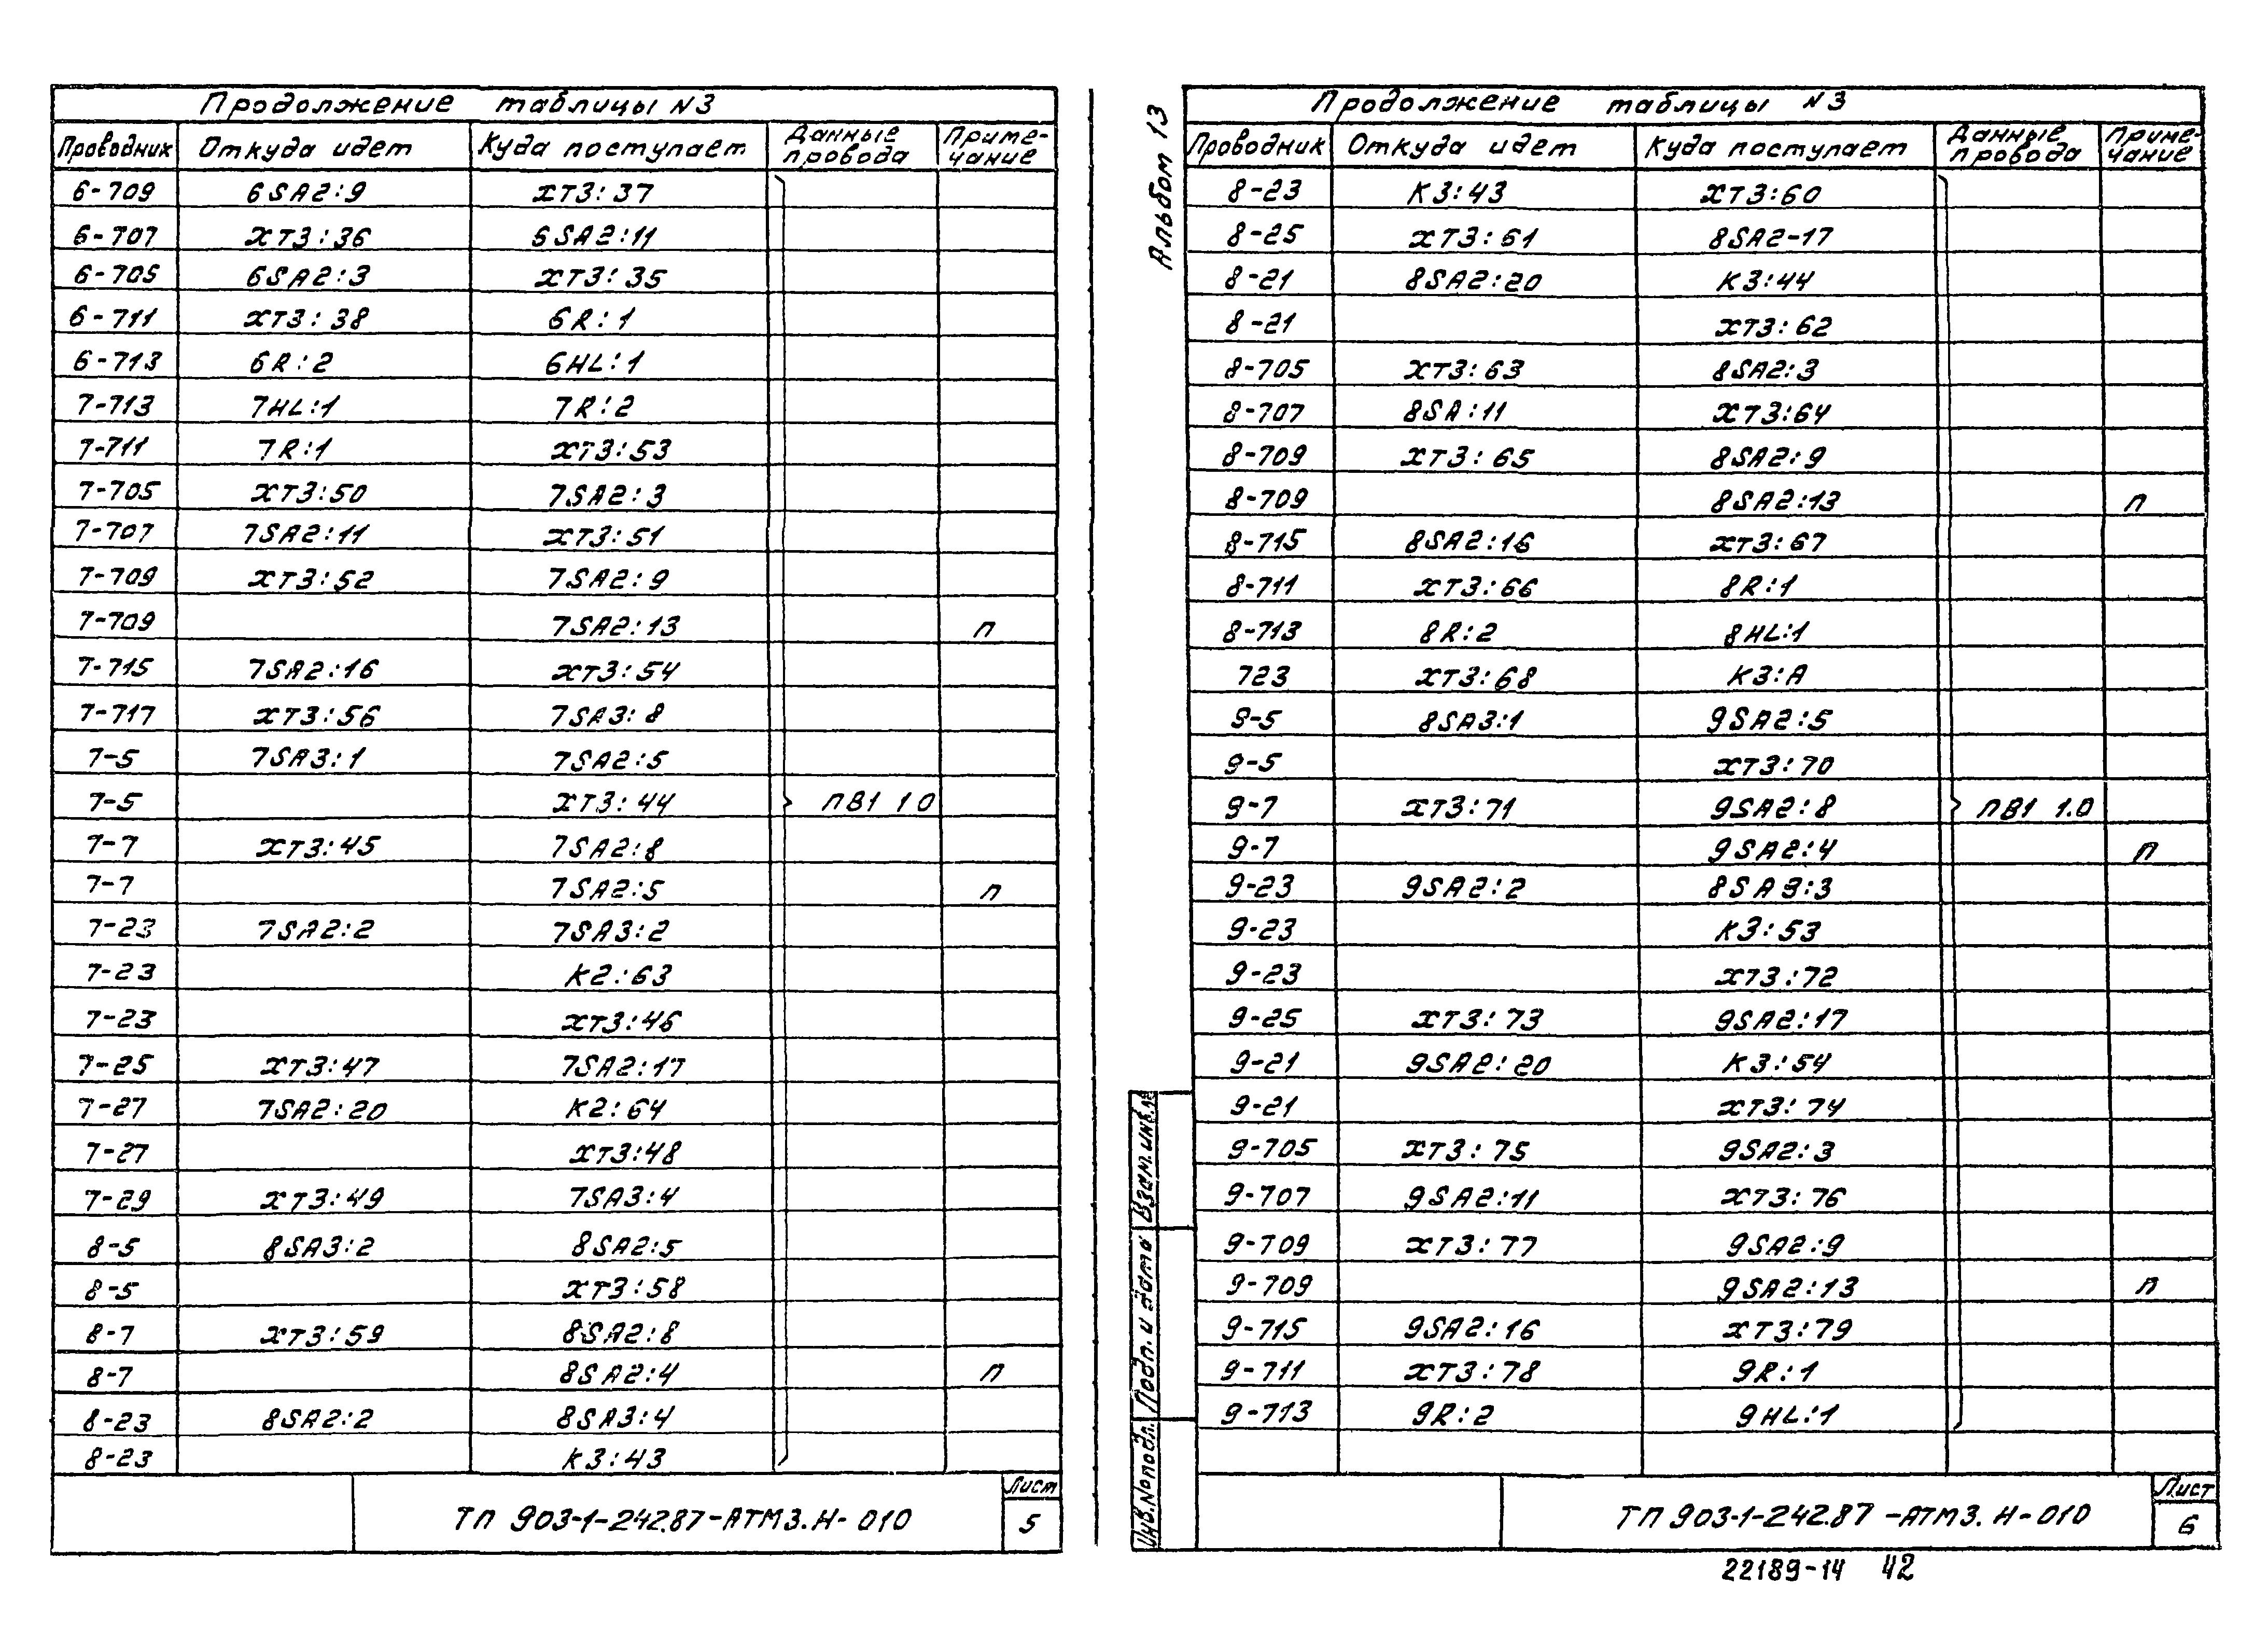 Продолжение таблицы N3
Проводник Откуда идет Куда поступает Данные провода Приме-чание
6-709 6SA2:9 XT3:37
6-707 XT3:36 6SA2:11
6-705 6SA2:3 XT3:35
6-711 XT3:38 6R:1
6-713 6R:2 6HL:1
7-713 7HL:1 7R:2
7-711 7R:1 XT3:53
7-705 XT3:50 7SA2:3
7-707 7SA2:11 XT3:51
7-709 XT3:52 7SA2:9
7-709 7SA2:13 п
7-715 7SA2:16 XT3:54
7-717 XT3:56 7SA3:8
7-5 7SA3:1 7SA2:5
7-5 XT3:44 ПВ1 1.0
7-7 XT3:45 7SA2:8
7-7 7SA2:5 п
7-23 7SA2:2 7SA3:2
7-23 K2:63
7-23 XT3:46
7-25 XT3:47 7SA2:17
7-27 7SA2:20 K2:64
7-27 XT3:48
7-29 XT3:49 7SA3:4
8-5 8SA3:2 8SA2:5
8-5 XT3:58
8-7 XT3:59 8SA2:8
8-7 8SA2:4 п
8-23 8SA2:2 8SA3:4
8-23 K3:43
ТП 903-1-242.87-АТМ3.Н-010
Лист
5
Альбом 13
Продолжение таблицы N3
Проводник Откуда идет Куда поступает Данные провода Приме-чание
8-23 K3:43 XT3:60
8-25 XT3:61 8SA2-17
8-21 8SA2:20 K3:44
8-21 XT3:62
8-705 XT3:63 8SA2:3
8-707 8SA:11 XT3:64
8-709 XT3:65 8SA2:9
8-709 8SA2:13 п
8-715 8SA2:16 XT3:67
8-711 XT3:66 8R:1
8-713 8R:2 8HL:1
723 XT3:68 K3:A
9-5 8SA3:1 9SA2:5
9-5 XT3:70
9-7 XT3:71 9SA2:8 ПВ1 1.0
9-7 9SA2:4 п
9-23 9SA2:2 8SA3:3
9-23 K3:53
9-23 XT3:72
9-25 XT3:73 9SA2:17
9-21 9SA2:20 K3:54
9-21 XT3:74
9-705 XT3:75 9SA2:3
9-707 9SA2:11 XT3:76
9-709 XT3:77 9SA2:9
9-709 9SA2:13 п
9-715 9SA2:16 XT3:79
9-711 XT3:78 9R:1
9-713 9R:2 9HL:1
Инв.№подл. Подп. и дата Взам.инв.№
ТП 903-1-242.87-АТМ3.Н-010
Лист
6
22189-14 42